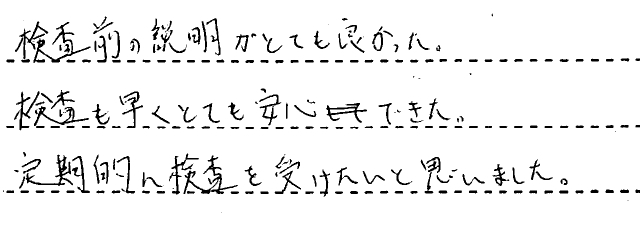 検査前の説明がとても良かった。
検査も早くとても安心できた。
定期的に検査を受けたいと思いました。